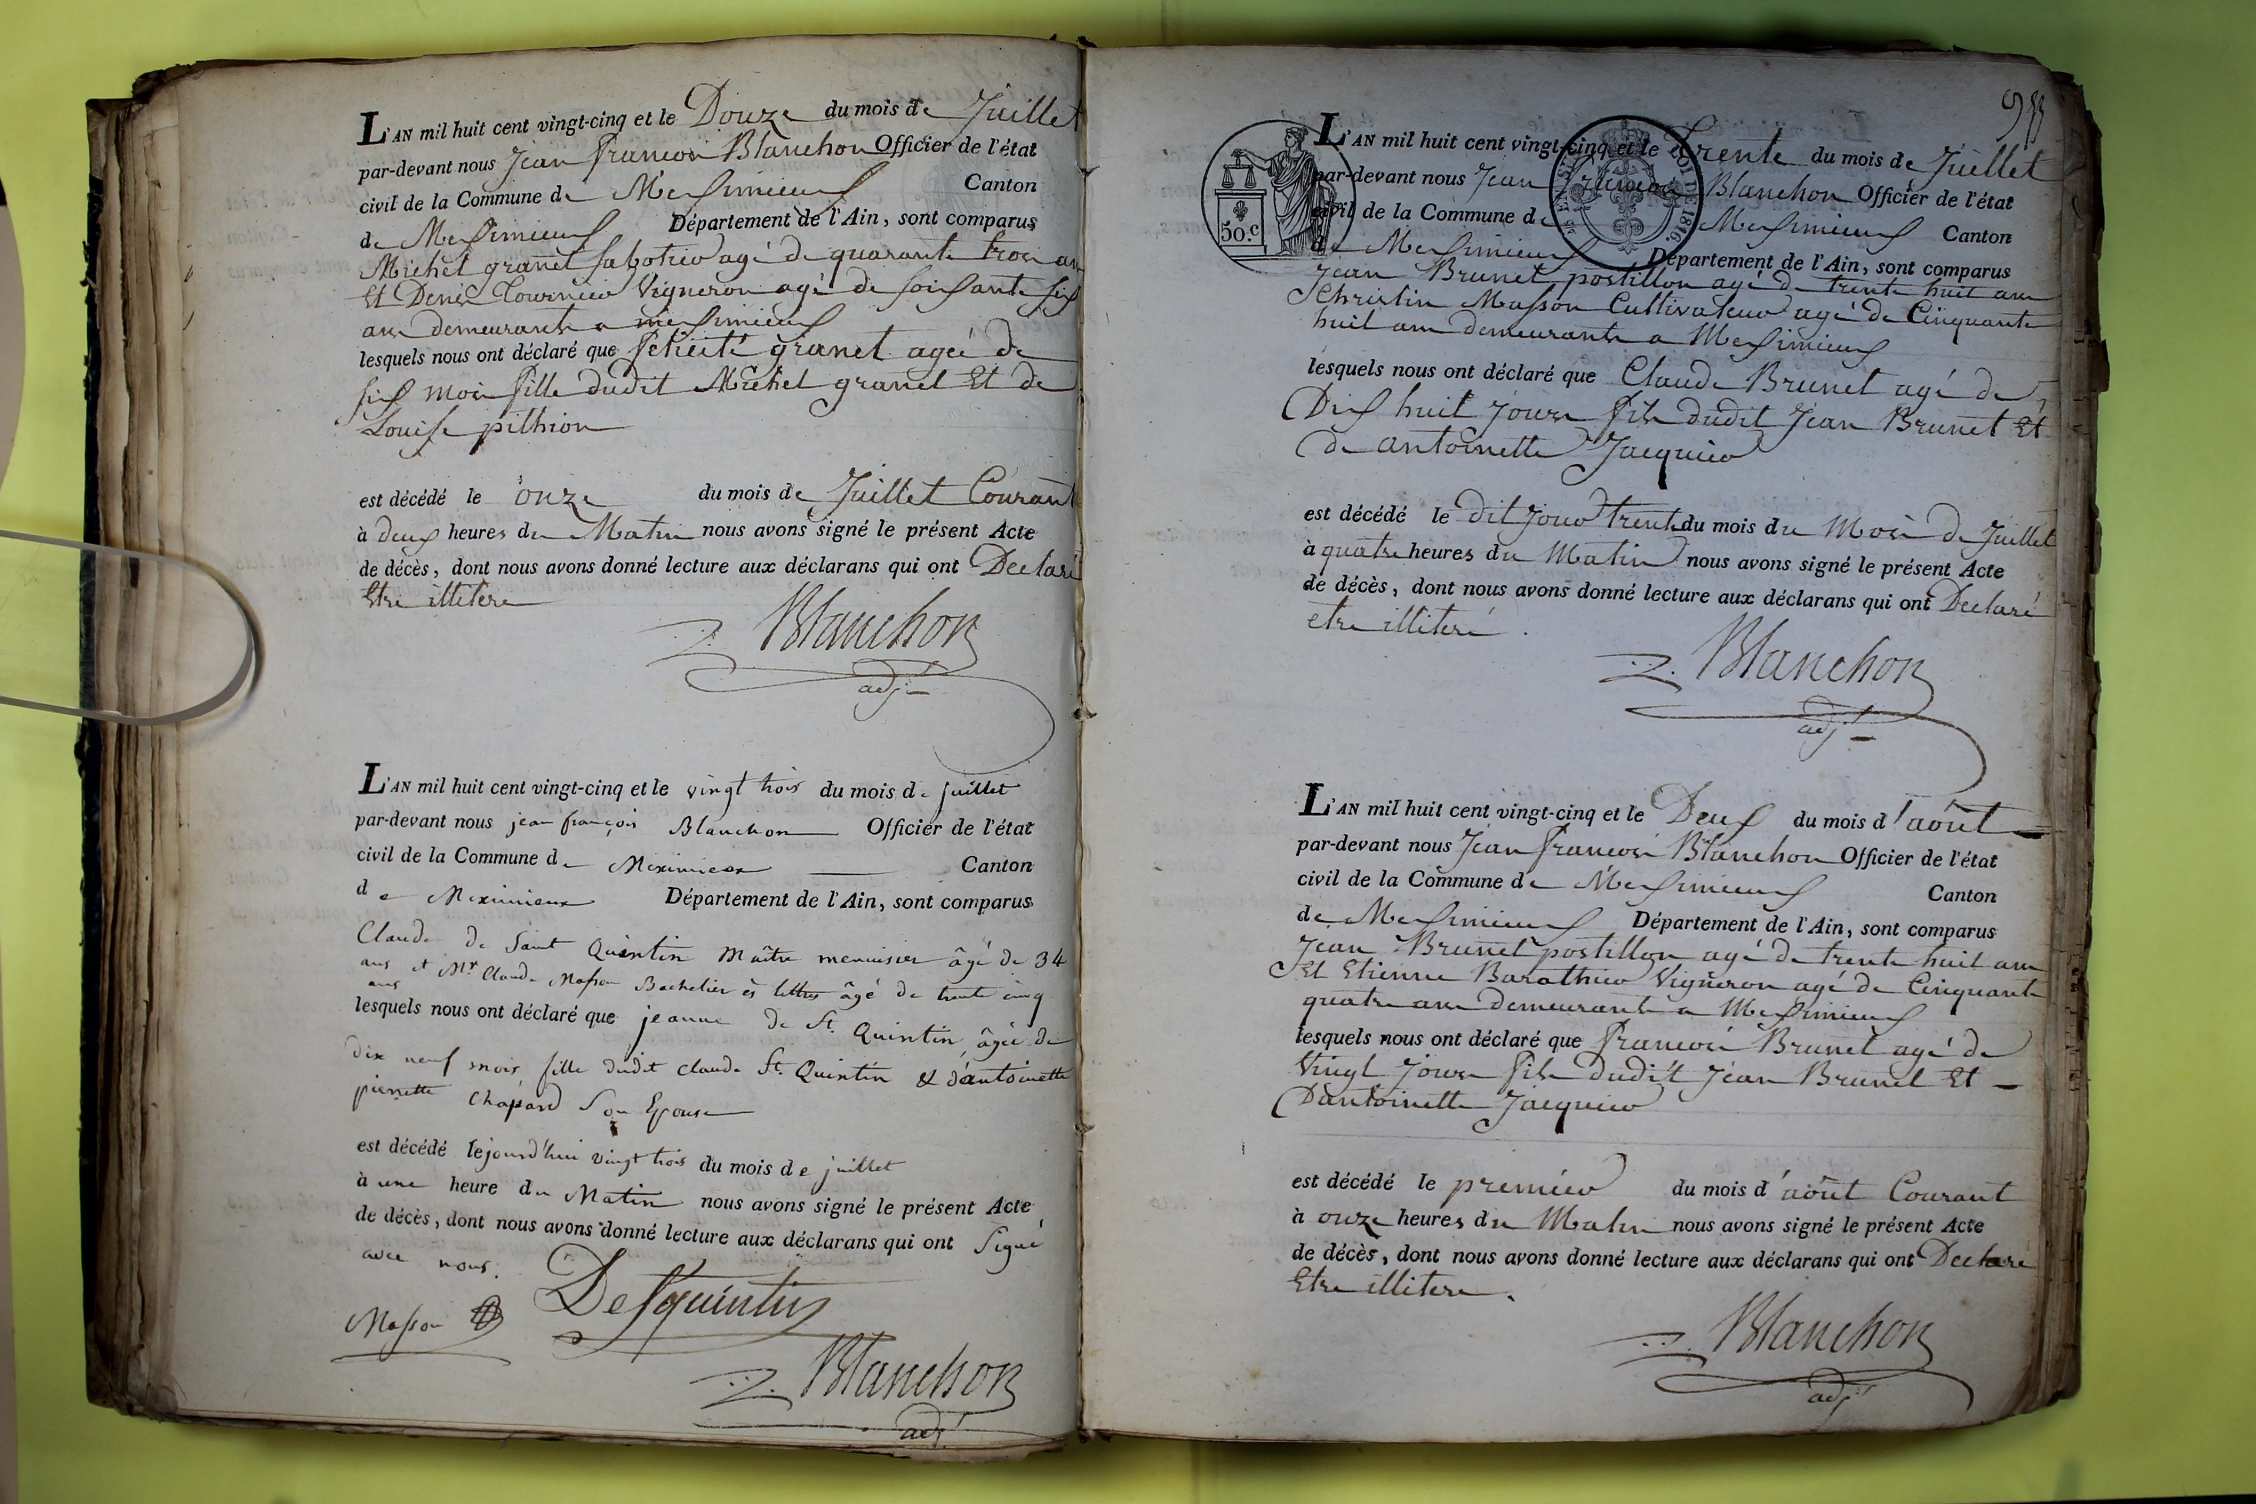 L'AN mil huit cent vingt-cinq et le Douze du mois de Juillet
par-devant nous Jean françois Blanchon Officier de l'état
civil de la Commune de Meximieux Canton
de Meximieux Département de l'Ain, sont comparus
Michel granet sabotier agé de quarante trois ans
Et Denis Tournier Vigneron agé de soixante six
ans demeurants a meximieux
lesquels nous ont déclaré que félicité granet ageé de
six mois fille dudit Michel granet Et de
Louise pithion
est décédé le onze du mois de Juillet Courant
à deux heures du Matin nous avons signé le présent Acte
de décès, dont nous avons donné lecture aux déclarans qui ont Declaré
Etre illitere
Blanchon
adj
L'AN mil huit cent vingt-cinq et le vingt trois du mois de juillet
par-devant nous jean françois Blanchon Officier de l'état
civil de la Commune de Meximieux Canton
de Meximieux Département de l'Ain, sont comparus
Claude de Saint Quintin Maître menuisier âgé de 34
ans et Mr Claude Masson Bachelier ès lettres âgé de trente cinq
ans
lesquels nous ont déclaré que jeanne de St. Quintin, âgée de
dix neuf mois fille dudit claude St. Quintin & d'antoinette
pierrette Chapard Son Epouse
est décédé le jourd'hui vingt trois du mois de juillet
à une heure du Matin nous avons signé le présent Acte
de décès, dont nous avons donné lecture aux déclarans qui ont Signé
avec nous.
Masson DeStquintin
Blanchon
adj
L'AN mil huit cent vingt-cinq et le Trente du mois de Juillet
par-devant nous Jean françois Blanchon Officier de l'état
civil de la Commune de Meximieux Canton
de Meximieux Département de l'Ain, sont comparus
50.c
LOI DE 1816.
Jean Brunet postillon agé de trente huit ans
Christin Masson Cultivateur agé de Cinquante
huit ans demeurants a Meximieux
lesquels nous ont déclaré que Claude Brunet agé de
Dix huit Jours fils dudit Jean Brunet Et
de antoinette Jacquier
est décédé le dit Jour trente du mois du Mois de Juillet
à quatre heures du Matin nous avons signé le présent Acte
de décès, dont nous avons donné lecture aux déclarans qui ont Déclaré
etre illiteré.
Blanchon
adjt
L'AN mil huit cent vingt-cinq et le Deux du mois d'août
par-devant nous Jean françois Blanchon Officier de l'état
civil de la Commune de Meximieux Canton
de Meximieux Département de l'Ain, sont comparus
Jean Brunet postillon agé de trente huit ans
Et Etienne Barathier Vigneron agé de Cinquante
quatre ans demeurants a Meximieux
lesquels nous ont déclaré que françois Brunet agé de
Vingt Jours fils dudit Jean Brunet Et
Dantoinette Jacquier
est décédé le premier du mois d'août Courant
à onze heures du Matin nous avons signé le présent Acte
de décès, dont nous avons donné lecture aux déclarans qui ont Declaré
Etre illitere.
Blanchon
adjt